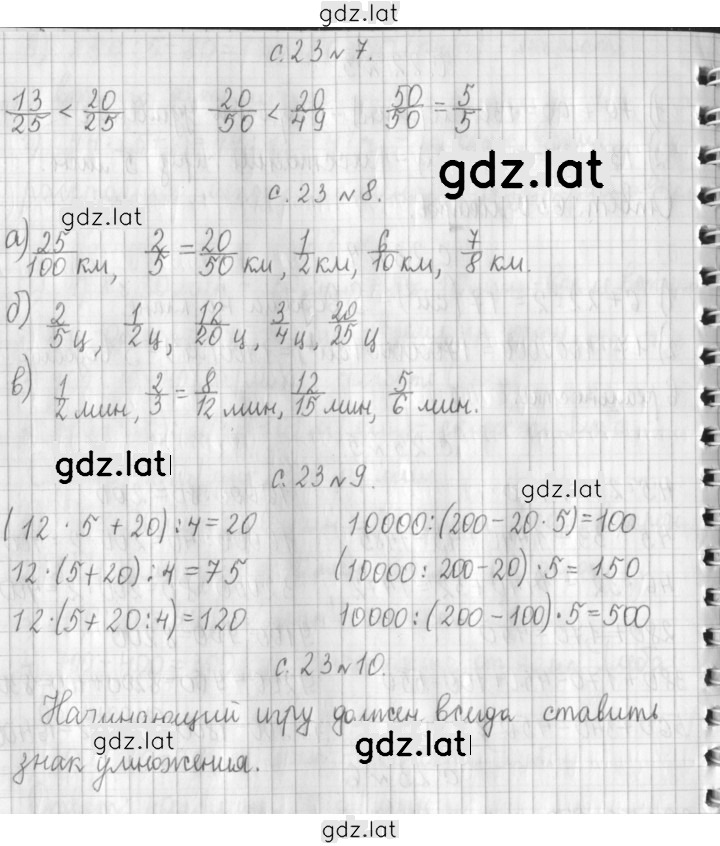 gdz.lat
с.23 №7.
13/25 < 20/25 20/50 < 20/49 50/50 = 5/5
gdz.lat
с.23 №8.
gdz.lat
а) 25/100 км, 2/5 = 20/50 км, 1/2 км, 6/10 км, 7/8 км.
б) 2/5 ц, 1/2 ц, 12/20 ц, 3/4 ц, 20/25 ц
в) 1/2 мин, 2/3 = 8/12 мин, 12/15 мин, 5/6 мин.
gdz.lat
с.23 №9.
gdz.lat
(12 · 5 + 20) : 4 = 20 10000 : (200 - 20 · 5) = 100
12 · (5 + 20) : 4 = 75 (10000 : 200 - 20) · 5 = 150
12 · (5 + 20 : 4) = 120 10000 : (200 - 100) · 5 = 500
с.23 №10.
Начинающий игру должен всегда ставить
gdz.lat gdz.lat
знак умножения.
gdz.lat